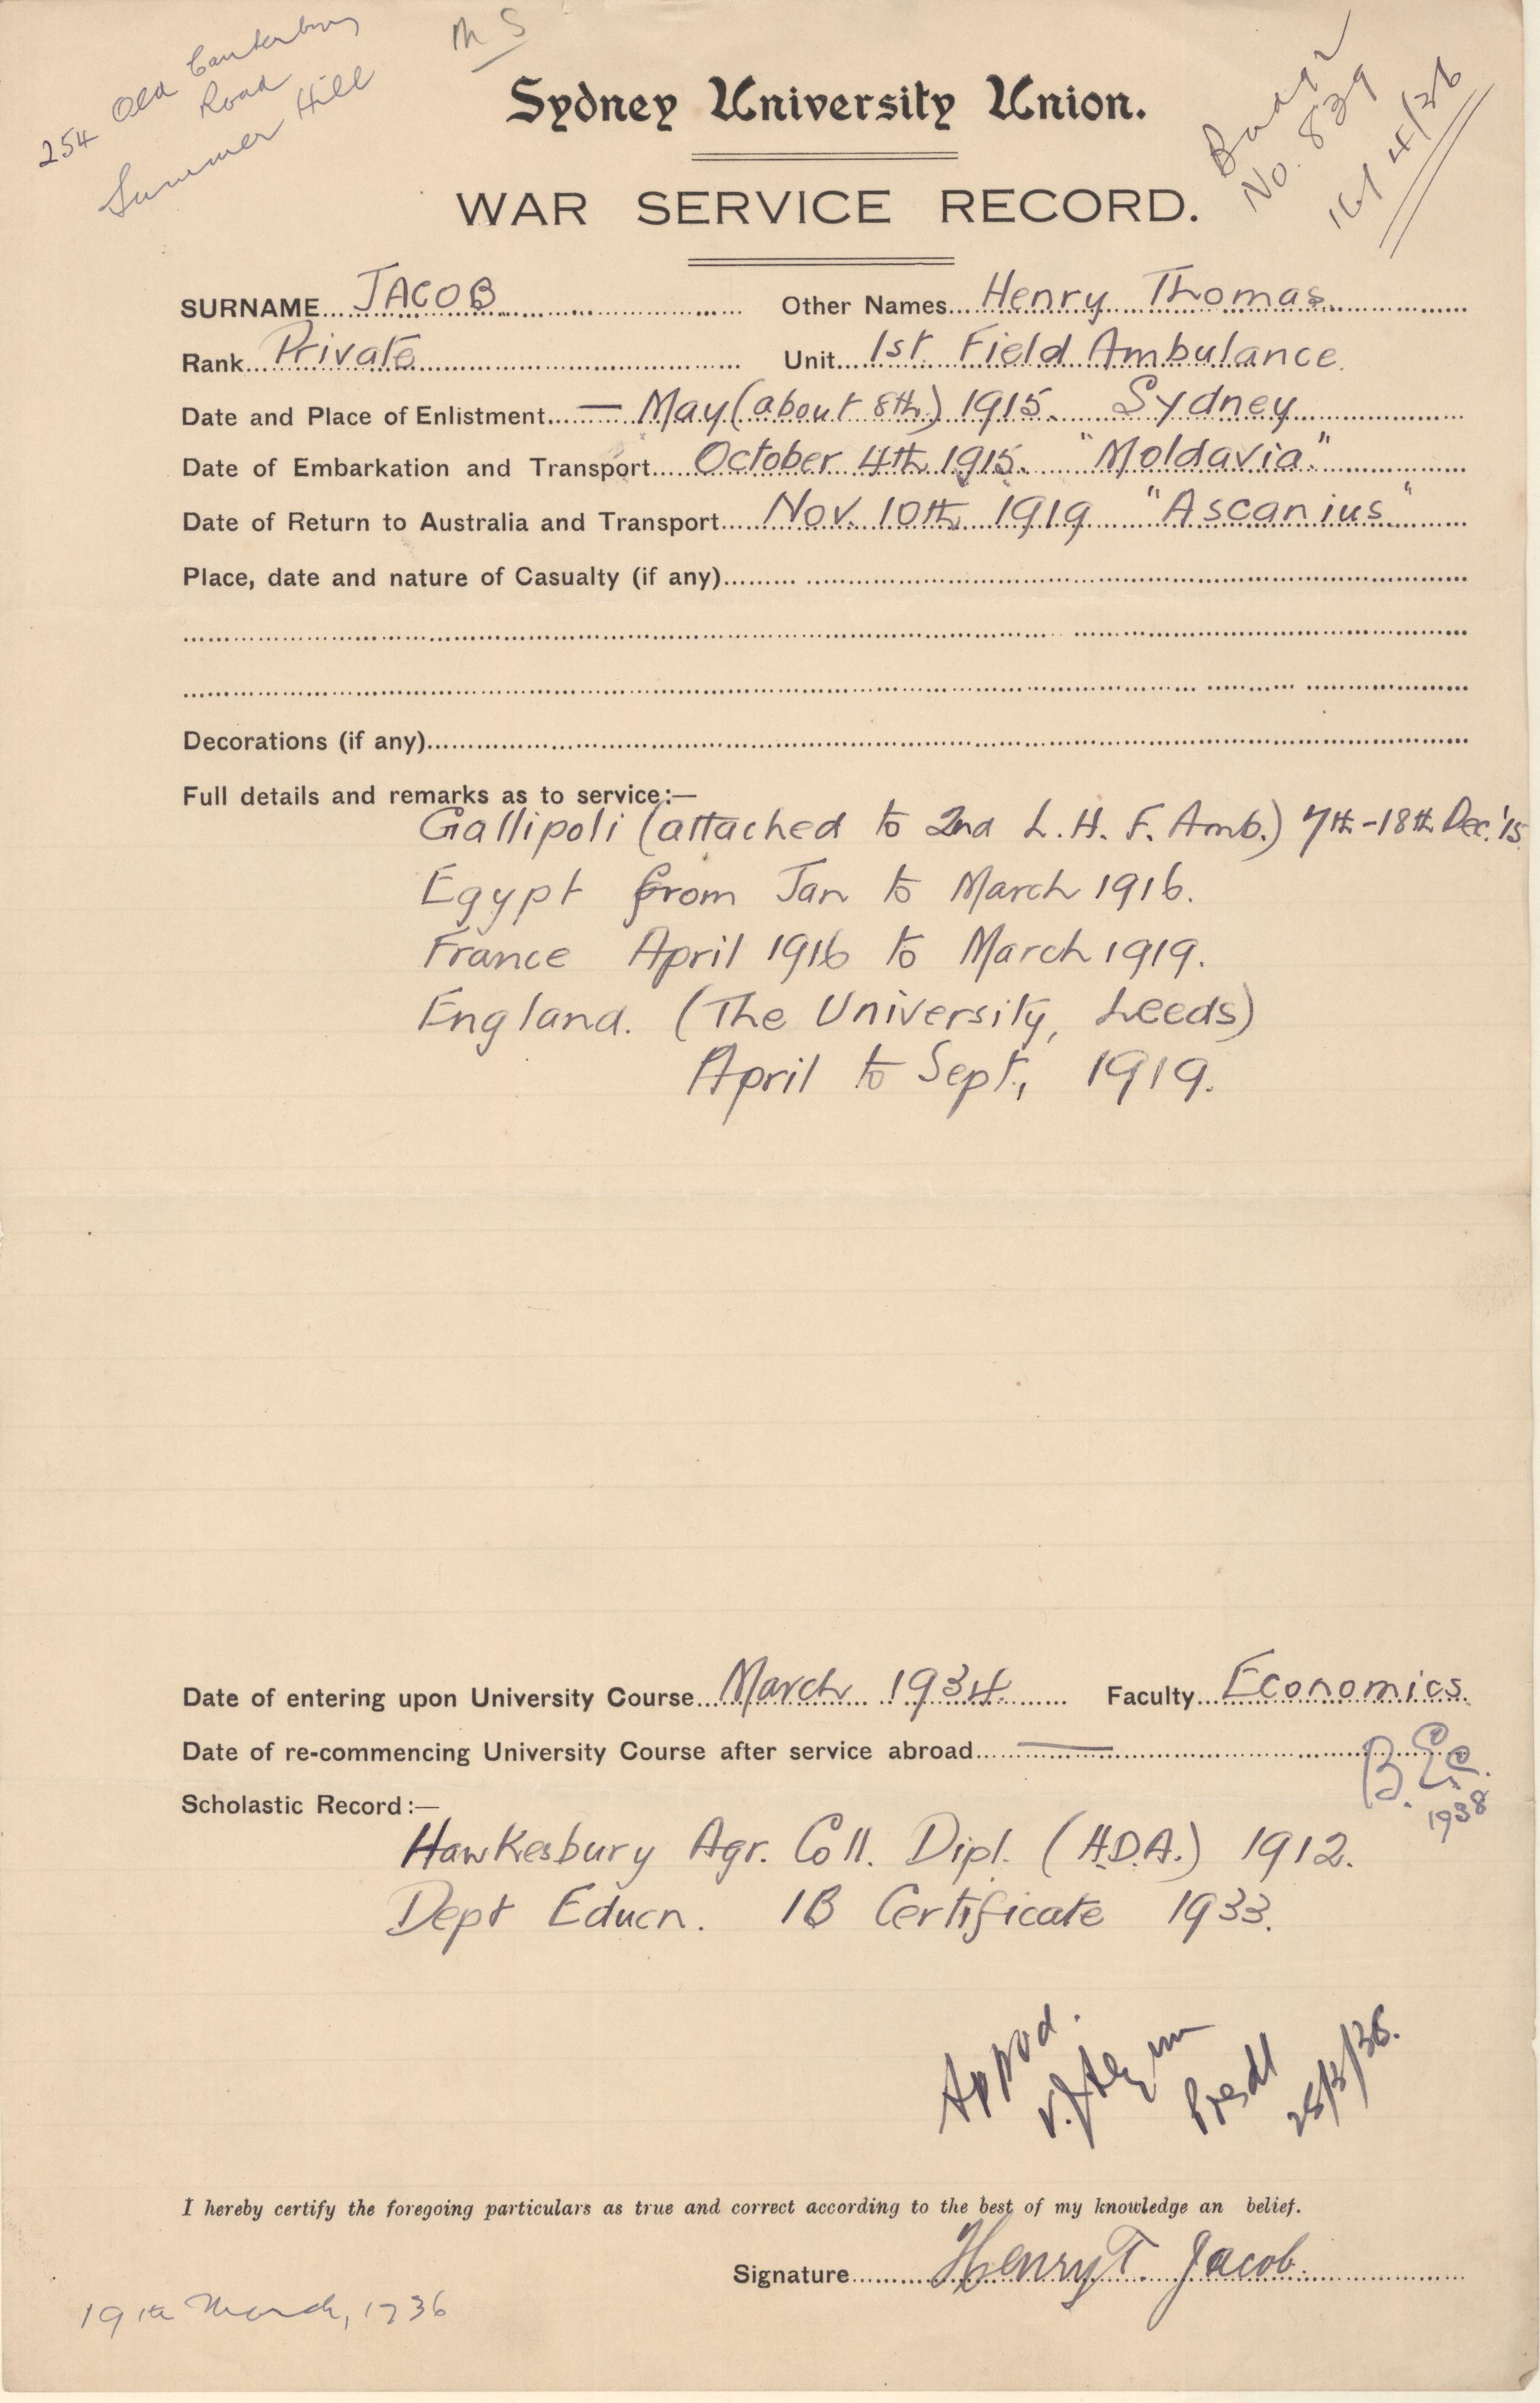 254 Old Canterbury
Road
Summer Hill
M S
Badge
No. 839
16/4/36
Sydney University Union.
WAR SERVICE RECORD.
SURNAME JACOB Other Names Henry Thomas
Rank Private Unit 1st Field Ambulance.
Date and Place of Enlistment — May (about 8th) 1915. Sydney
Date of Embarkation and Transport October 4th 1915. "Moldavia"
Date of Return to Australia and Transport Nov. 10th 1919 "Ascanius"
Place, date and nature of Casualty (if any)
Decorations (if any)
Full details and remarks as to service:—
Gallipoli (attached to 2nd L. H. F. Amb.) 7th-18th Dec. '15
Egypt from Jan to March 1916.
France April 1916 to March 1919.
England. (The University, Leeds)
April to Sept, 1919.
Date of entering upon University Course March 1934 Faculty Economics.
Date of re-commencing University Course after service abroad —
B. Ec.
1938
Scholastic Record:—
Hawkesbury Agr. Coll. Dipl. (H.D.A.) 1912.
Dept Educn. 1B Certificate 1933.
Appvd.
Presdt
25/3/36.
I hereby certify the foregoing particulars as true and correct according to the best of my knowledge an belief.
Signature Henry T. Jacob.
19th March, 1936